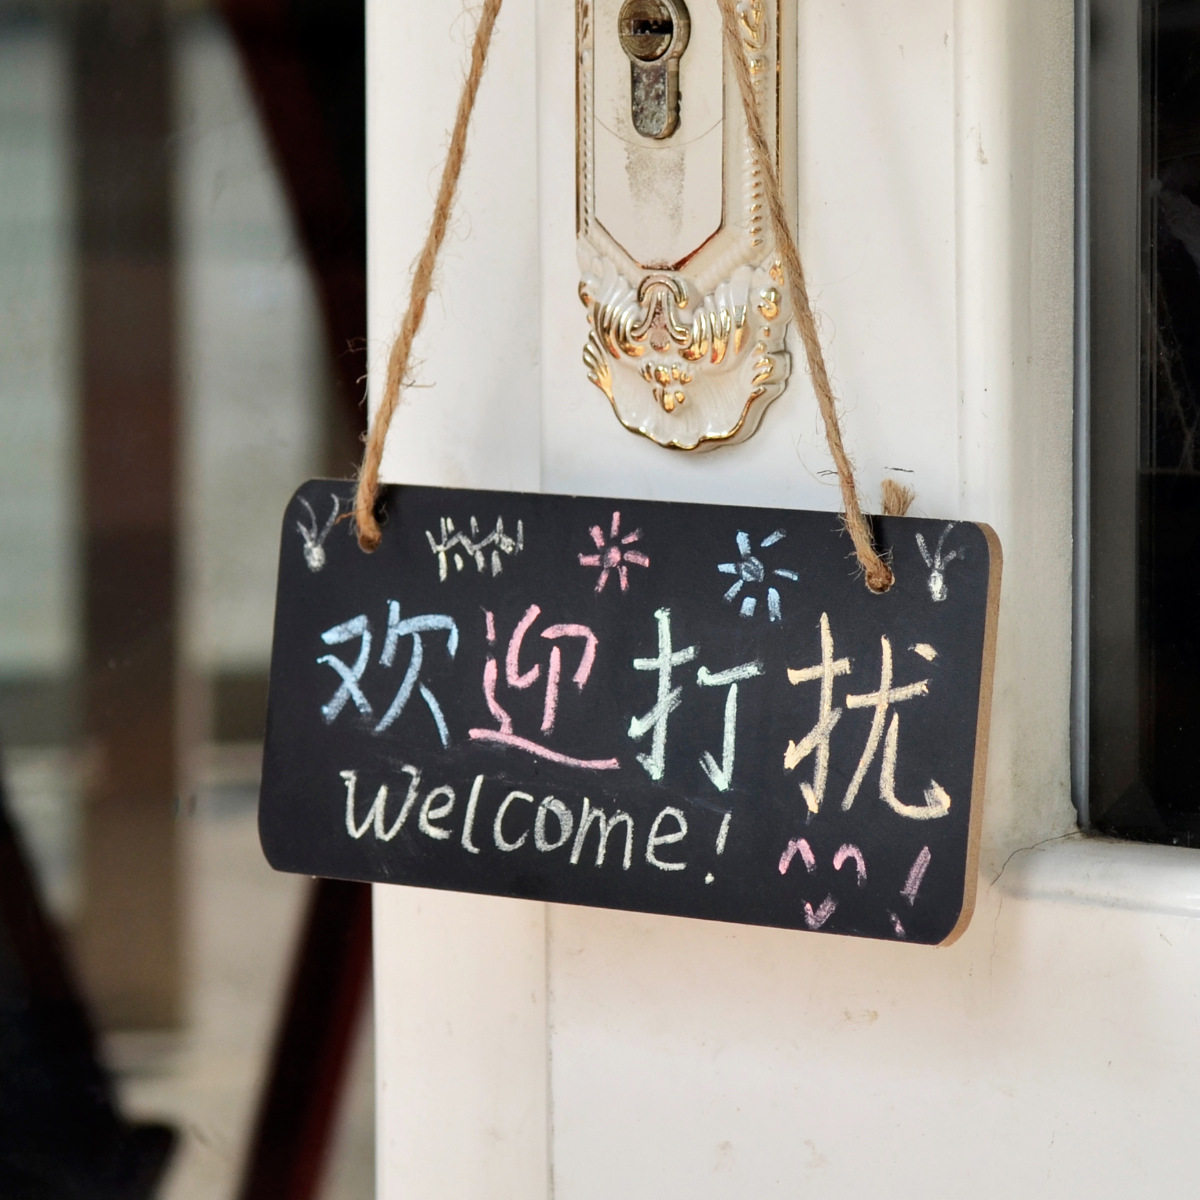 欢迎打扰
Welcome!